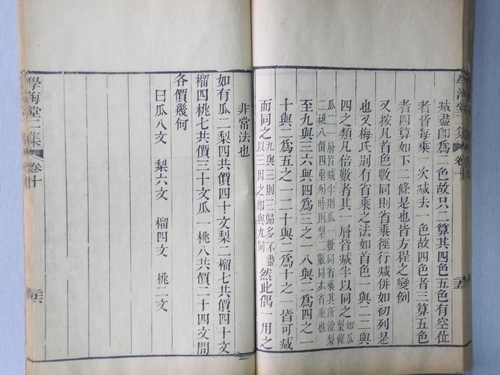 減盡卽爲二色故只二算其四色五色有空位
者皆每乘一次減去一色故四色者三算五色
者四算如下二條是也皆方程之變例
又按凡首色數同則首乘徑行減併如初列是
也又梅氏別有省乘之法如首色一與二二與
四之類凡倍數者其一層皆減半以同之
至九與三六與四爲三之一
十與二爲五之一二十與二爲十之一皆可減
而同之九與三則三歸多不盡以三因之卽與九同然此偶一用之
非常法也
如有瓜二梨四共價四十文梨二榴七共價四十文
榴四桃七共價三十文瓜一桃八共價二十四文問
各價幾何
曰瓜八文 梨六文 榴四文 桃二文
學海堂二集 卷十